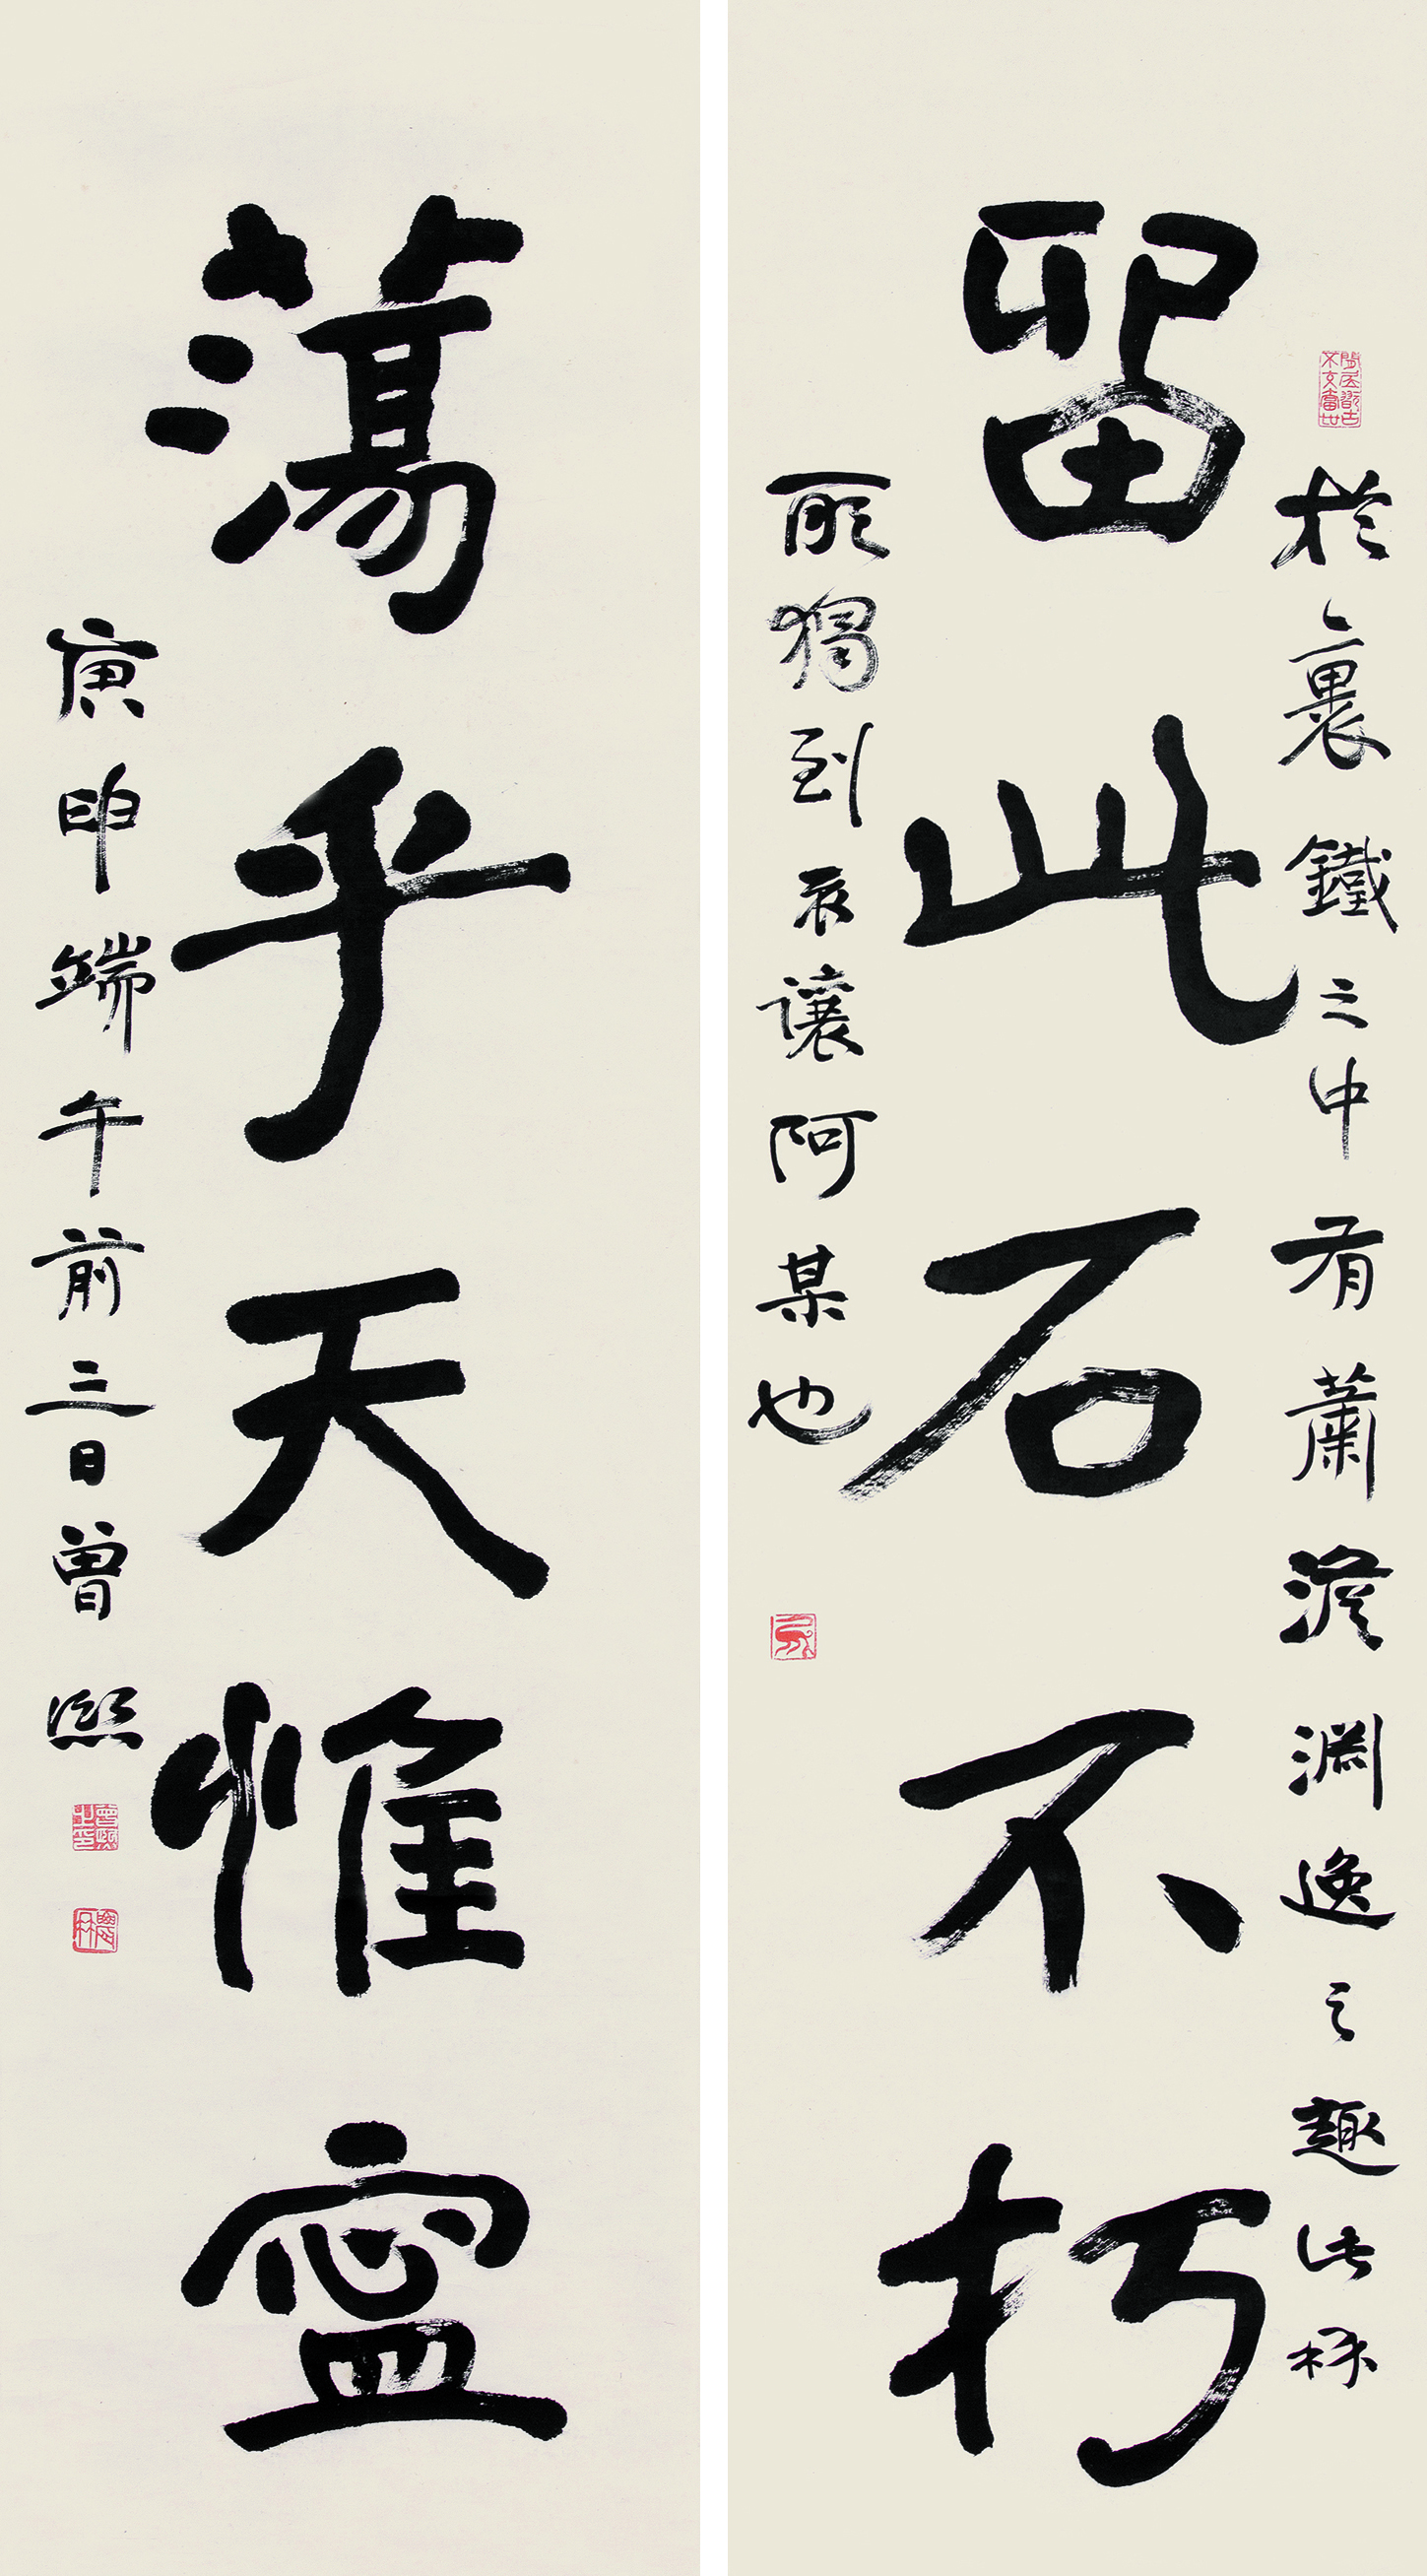 於裹鐵之中有蕭澹淵逸之趣此秝
留此石不朽
所獨到衣讓阿某也
蕩乎天惟寧
庚申端午前三日曾熙
曾熙之印